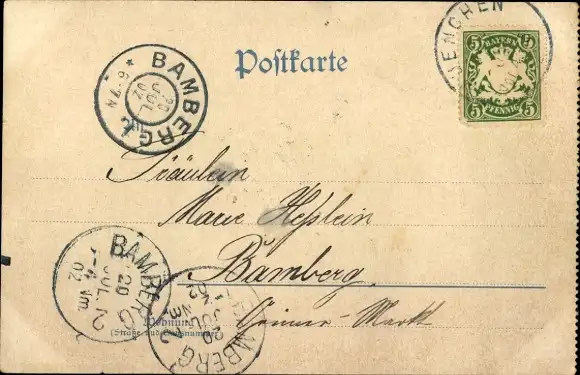 UEMCHEN
BAYERN
5 5
5 5
PFENNIG
Postkarte
BAMBERG
20
JUL
02
Fräulein
Marie Heßlein
Bamberg.
Grüner-Markt
BAMBERG 2
20
JUL
Nm.
02
BAMBERG 2
20
JUL
Nm.
02
Wohnung
(Straße und Hausnummer)